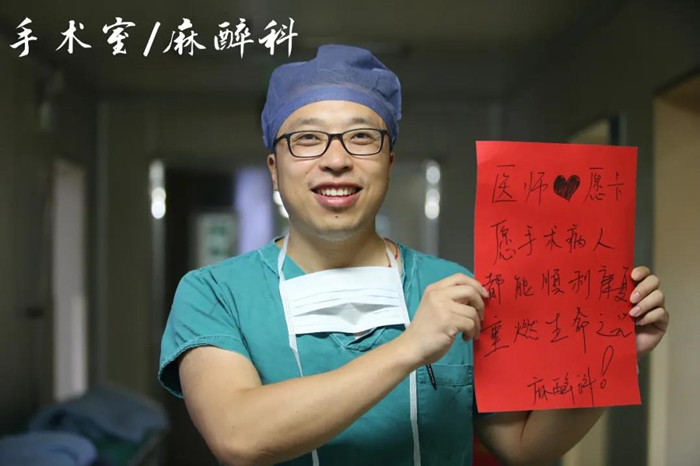 手术室/麻醉科
医师♥愿卡
愿手术病人
都能顺利康复
重燃生命之
麻醉科!